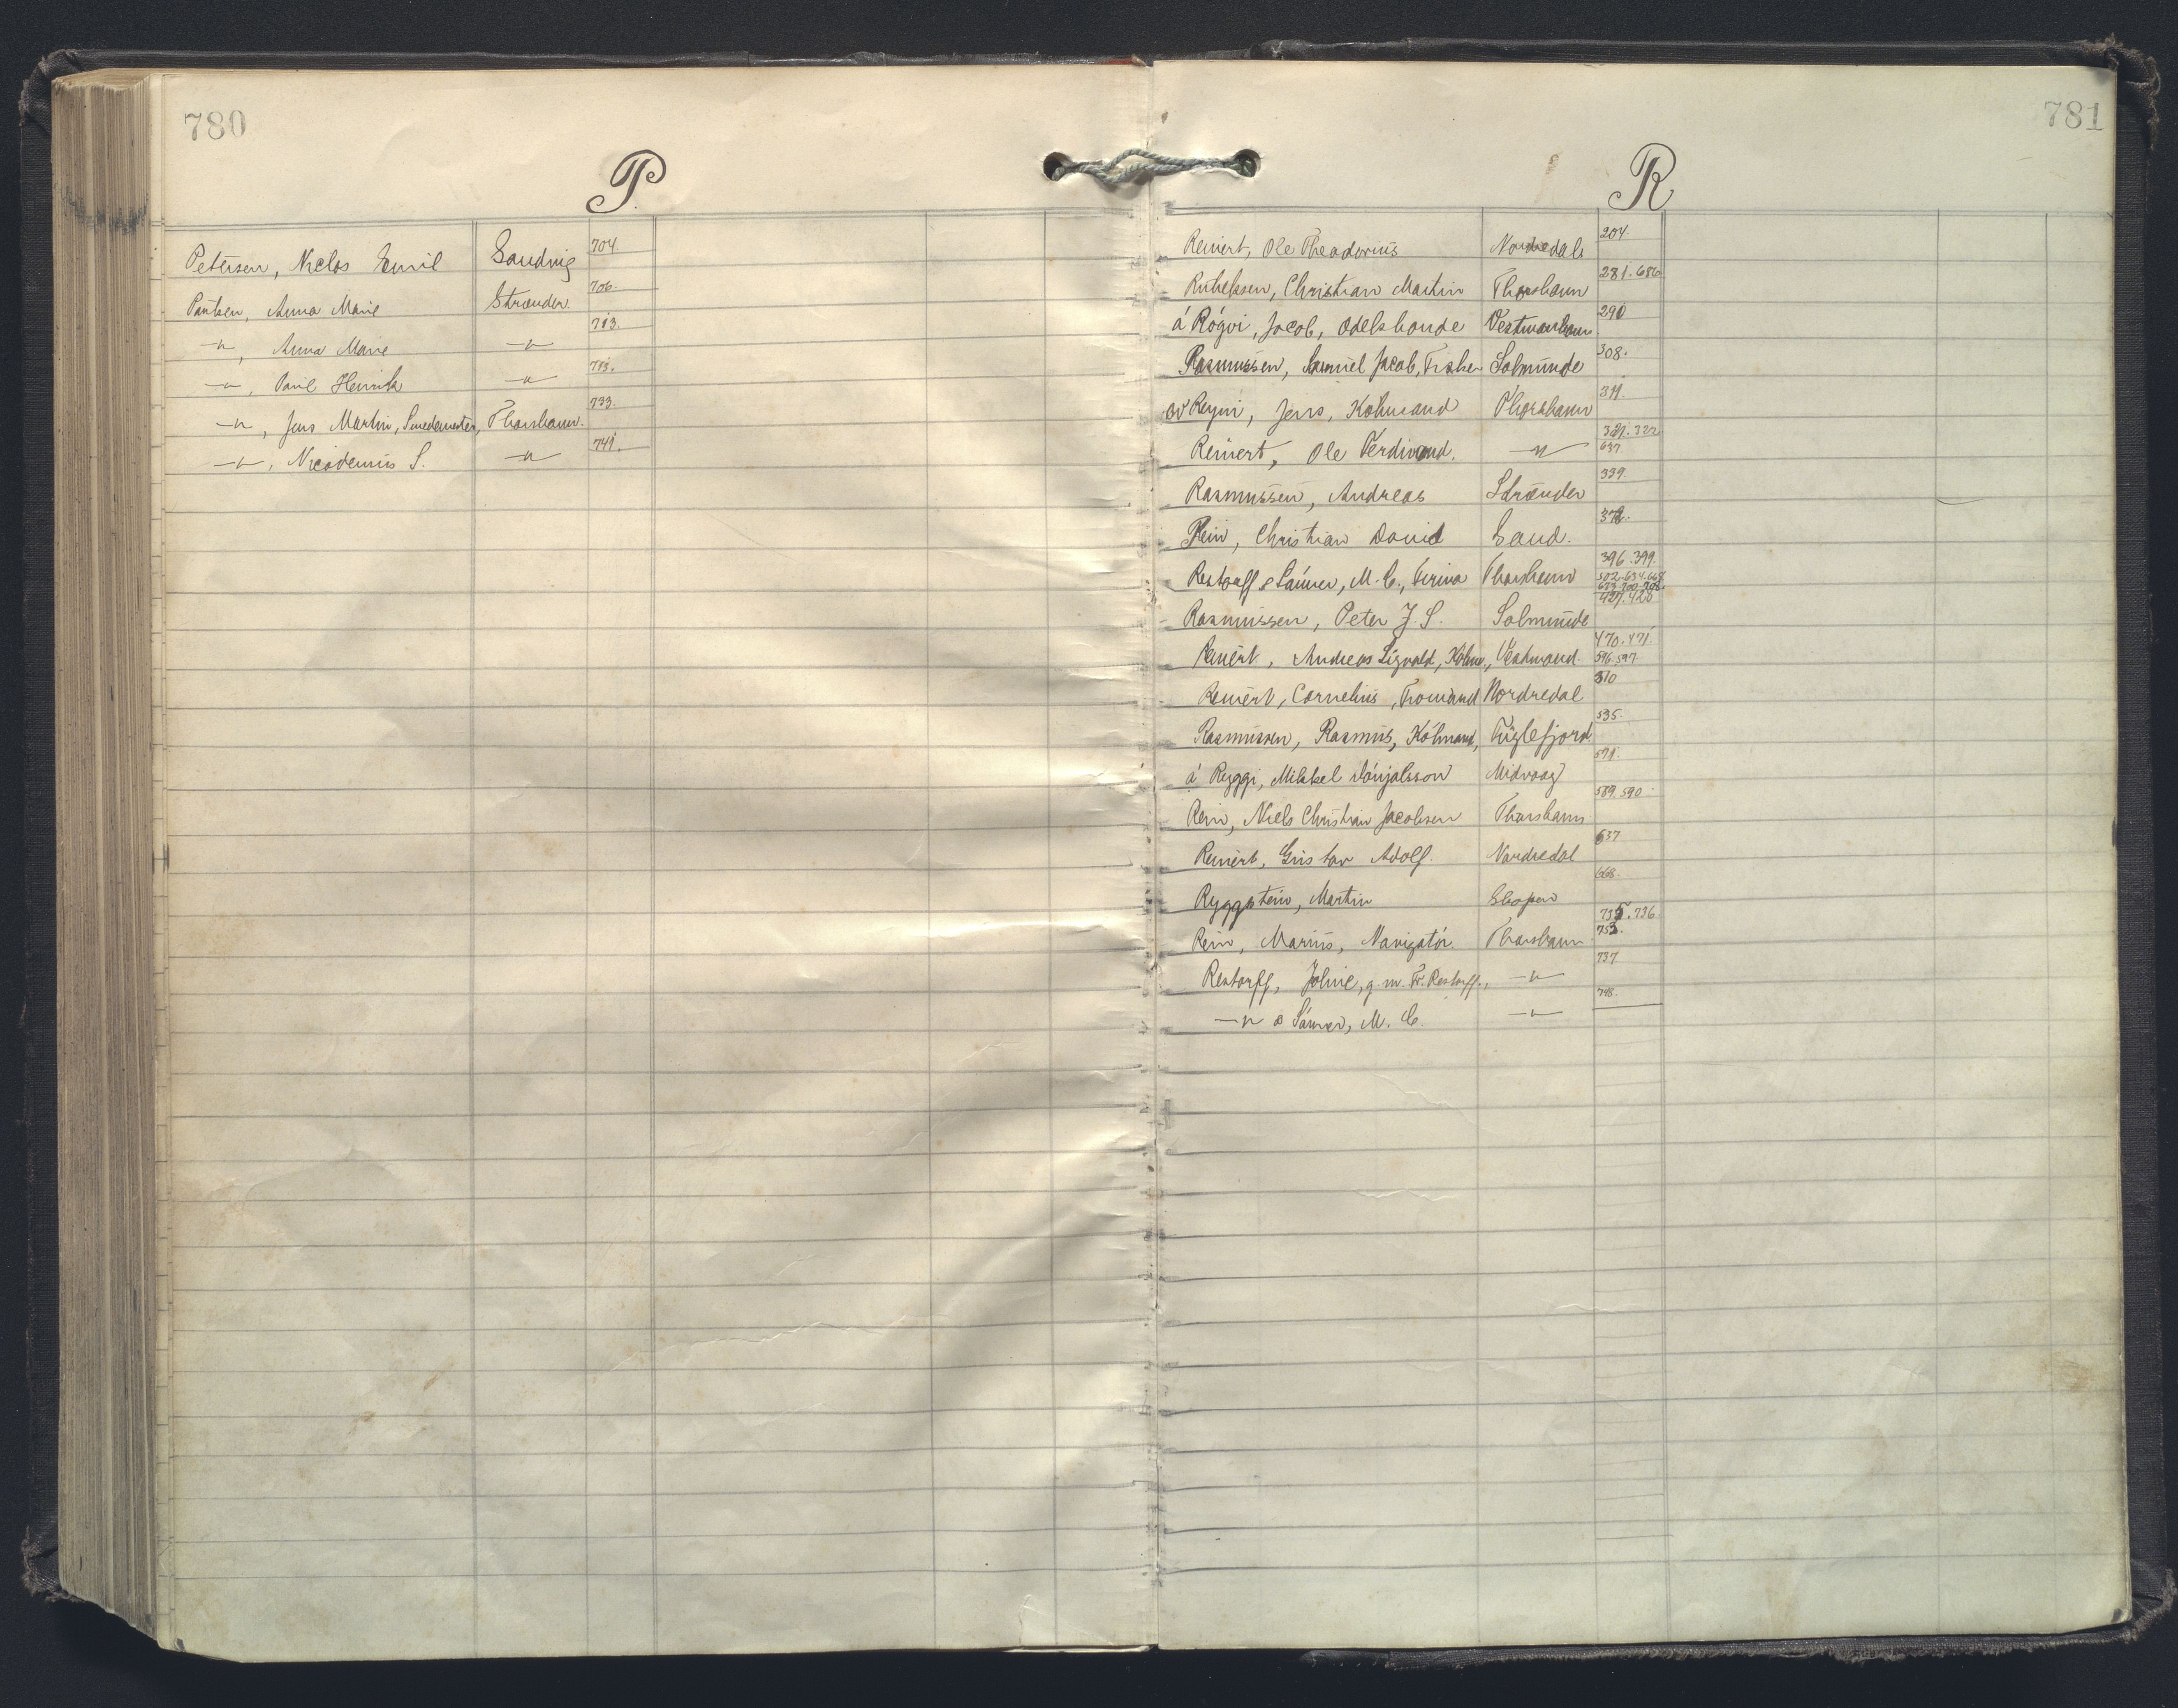 780
P.
Petersen, Niclas Emil Sandvig 704.
Poulsen, Anna Marie Strænder. 706.
—"—, Anna Marie —"— 713.
—"—, Paul Henrik —"— 713.
—"—, Jens Martin, Smedemester, Thorshavn. 733.
—"—, Nicodemus S. —"— 741.
781
R
Reinert, Ole Theodorius Nordredal 204.
Christian Martin Thorshavn 281. 686
á Rógvi, Jacob, Odelsbonde Vestmanhavn 290
Rasmussen, Samuel Jacob, Fisker Solmunde 308.
av Reyni, Jens, Købmand Thorshavn 311.
Reinert, Ole Ferdinand. —"— 321. 322 637.
Rasmussen, Andreas Strænder 339.
Rein, Christian David Sand. 372.
Restorff & Sønner, M. C., Firma Thorshavn 396. 399. 502. 634. 668 673. 700. 708
Rasmussen, Peter J. S. Solmunde 427. 428
Reinert, Andreas Sigvald, Købm., Vestmand. 470. 471. 596. 597.
Reinert, Cornelius, Tromand Nordredal 510
Rasmussen, Rasmus, Købmand, Fuglefjord 535.
á Ryggi, Mikkel Dánjalsson Midvaag 571.
Rein, Niels Christian Jacobsen Thorshavn 589. 590.
Reinert, Gustav Adolf. Nordredal 637
Ryggstein, Martin Skopen 668.
Rein, Marius, Navigatør. Thorshavn 735. 736. 753.
Restorff, Joline, g. m. Fr. Restorff., —"— 737.
—"— & Sønner, M. C. —"— 748.